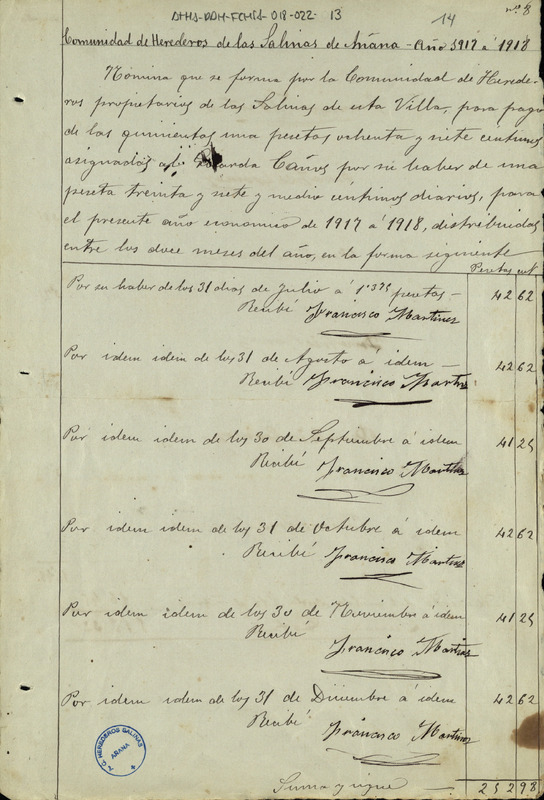 AHHS-DDH-FCHTS-018-022-13
14
nº 8
Comunidad de Herederos de las Salinas de Añana - Año 1917 á 1918
Nómina que se forma por la Comunidad de Herede-
ros propietarios de las Salinas de esta Villa, para pago
de las quinientas una pesetas ochenta y siete centimos
asignadas al Guarda Caños por su haber de una
peseta treinta y siete y medio céntimos diarios, para
el presente año economico de 1917 á 1918, distribuidas
entre los doce meses del año, en la forma siguiente
Pesetas cent
Por su haber de los 31 dias de Julio á 1'375 pesetas - 42 62
Recibí Francisco Martinez
Por idem idem de los 31 de Agosto á idem - 42 62
Recibí Francisco Martinez
Por idem idem de los 30 de Septiembre á idem 41 25
Recibí Francisco Martinez
Por idem idem de los 31 de Octubre á idem 42 62
Recibí Francisco Martinez
Por idem idem de los 30 de Noviembre á idem 41 25
Recibí Francisco Martinez
Por idem idem de los 31 de Diciembre á idem 42 62
Recibí Francisco Martinez
HEREDEROS SALINAS
AÑANA
Suma y sigue 252 98